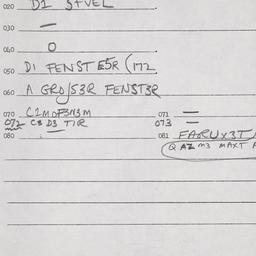 020 D1 STVEL
030 —
040 O
050 D1 FENSTE5R (172
060 A GRO/S3R FENST3R
070 C2MOF3N3M 071 =
072 C8 D3 TIR 073 =
080 081 FARUX3T
Q AZ M3 MAXT